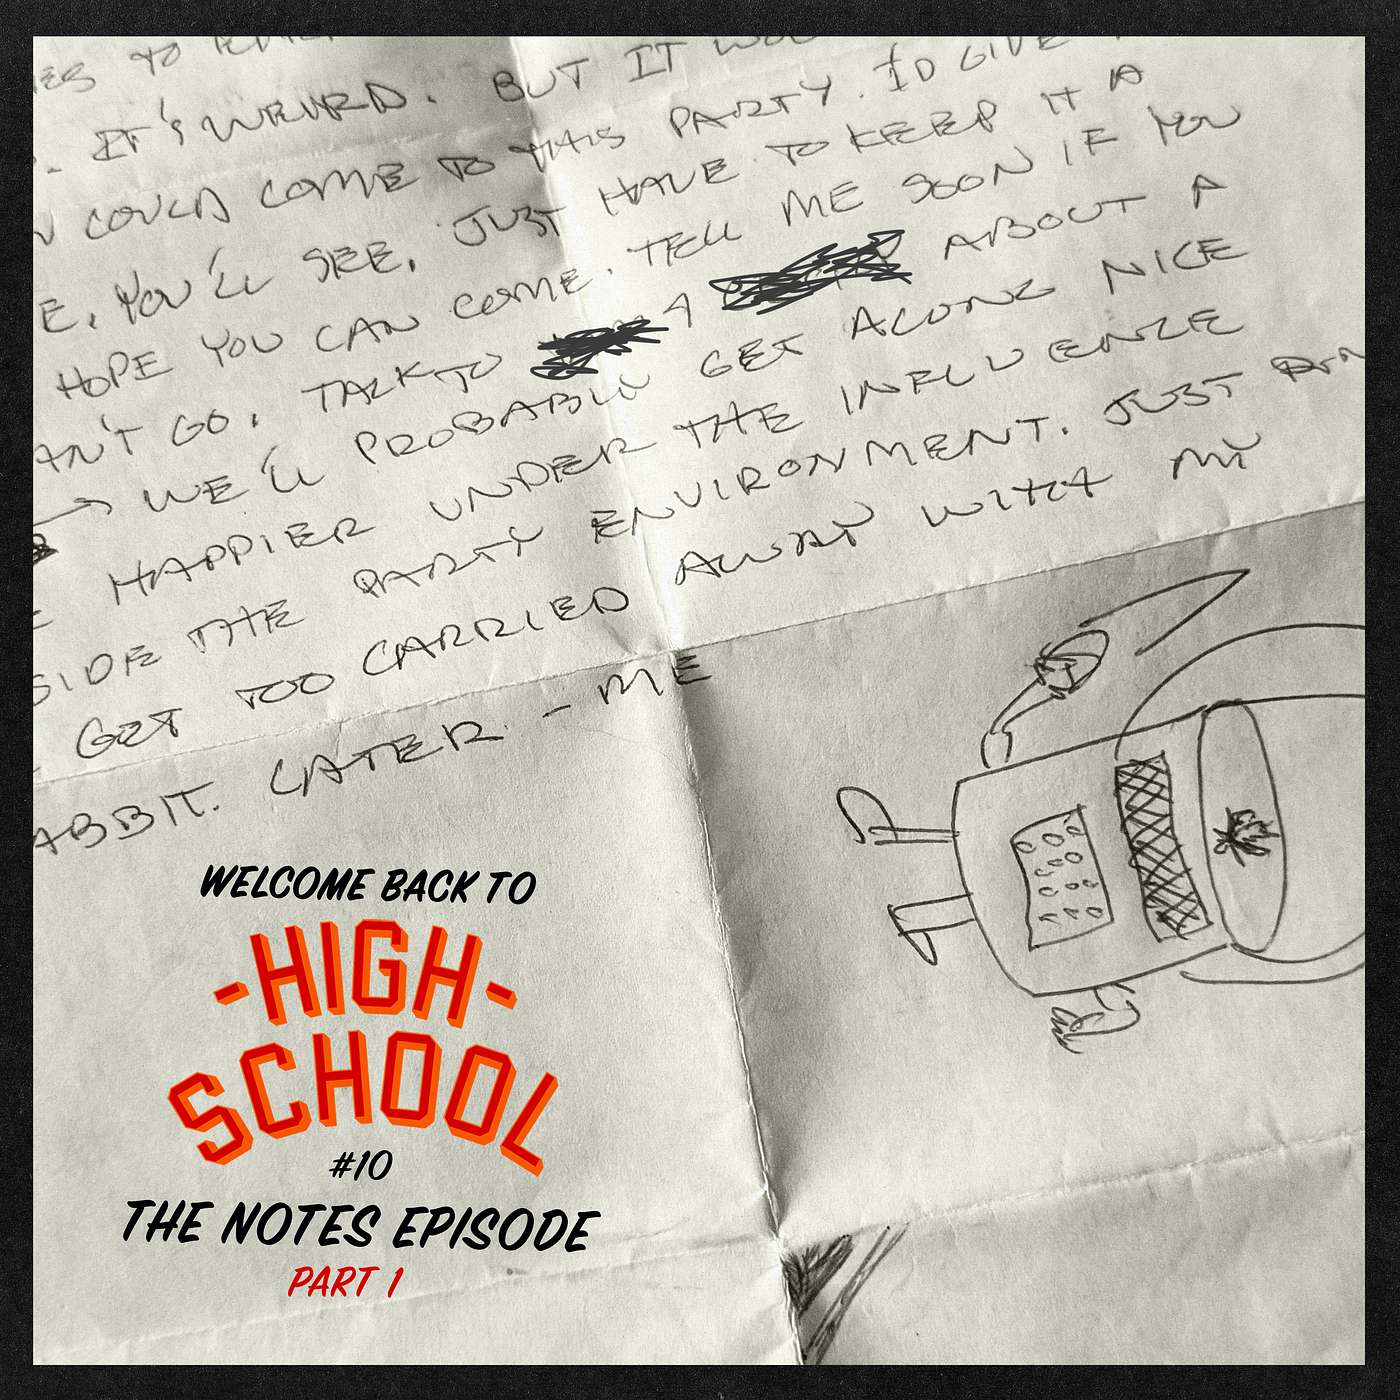 ES TO
. IT'S WEIRD. BUT IT WOU
COULD COME TO THIS PARTY. I'D GIVE
E, YOU'LL SEE. JUST HAVE TO KEEP IT A
HOPE YOU CAN COME. TELL ME SOON IF YOU
AN'T GO. TALK TO 4 ABOUT A
WE'LL PROBABLY GET ALONG NICE
E HAPPIER UNDER THE INFLUENCE
SIDE THE PARTY ENVIRONMENT. JUST
GET TOO CARRIED AWAY WITH MY
ABBIT. LATER. - ME
WELCOME BACK TO
-HIGH-
SCHOOL
#10
THE NOTES EPISODE
PART 1